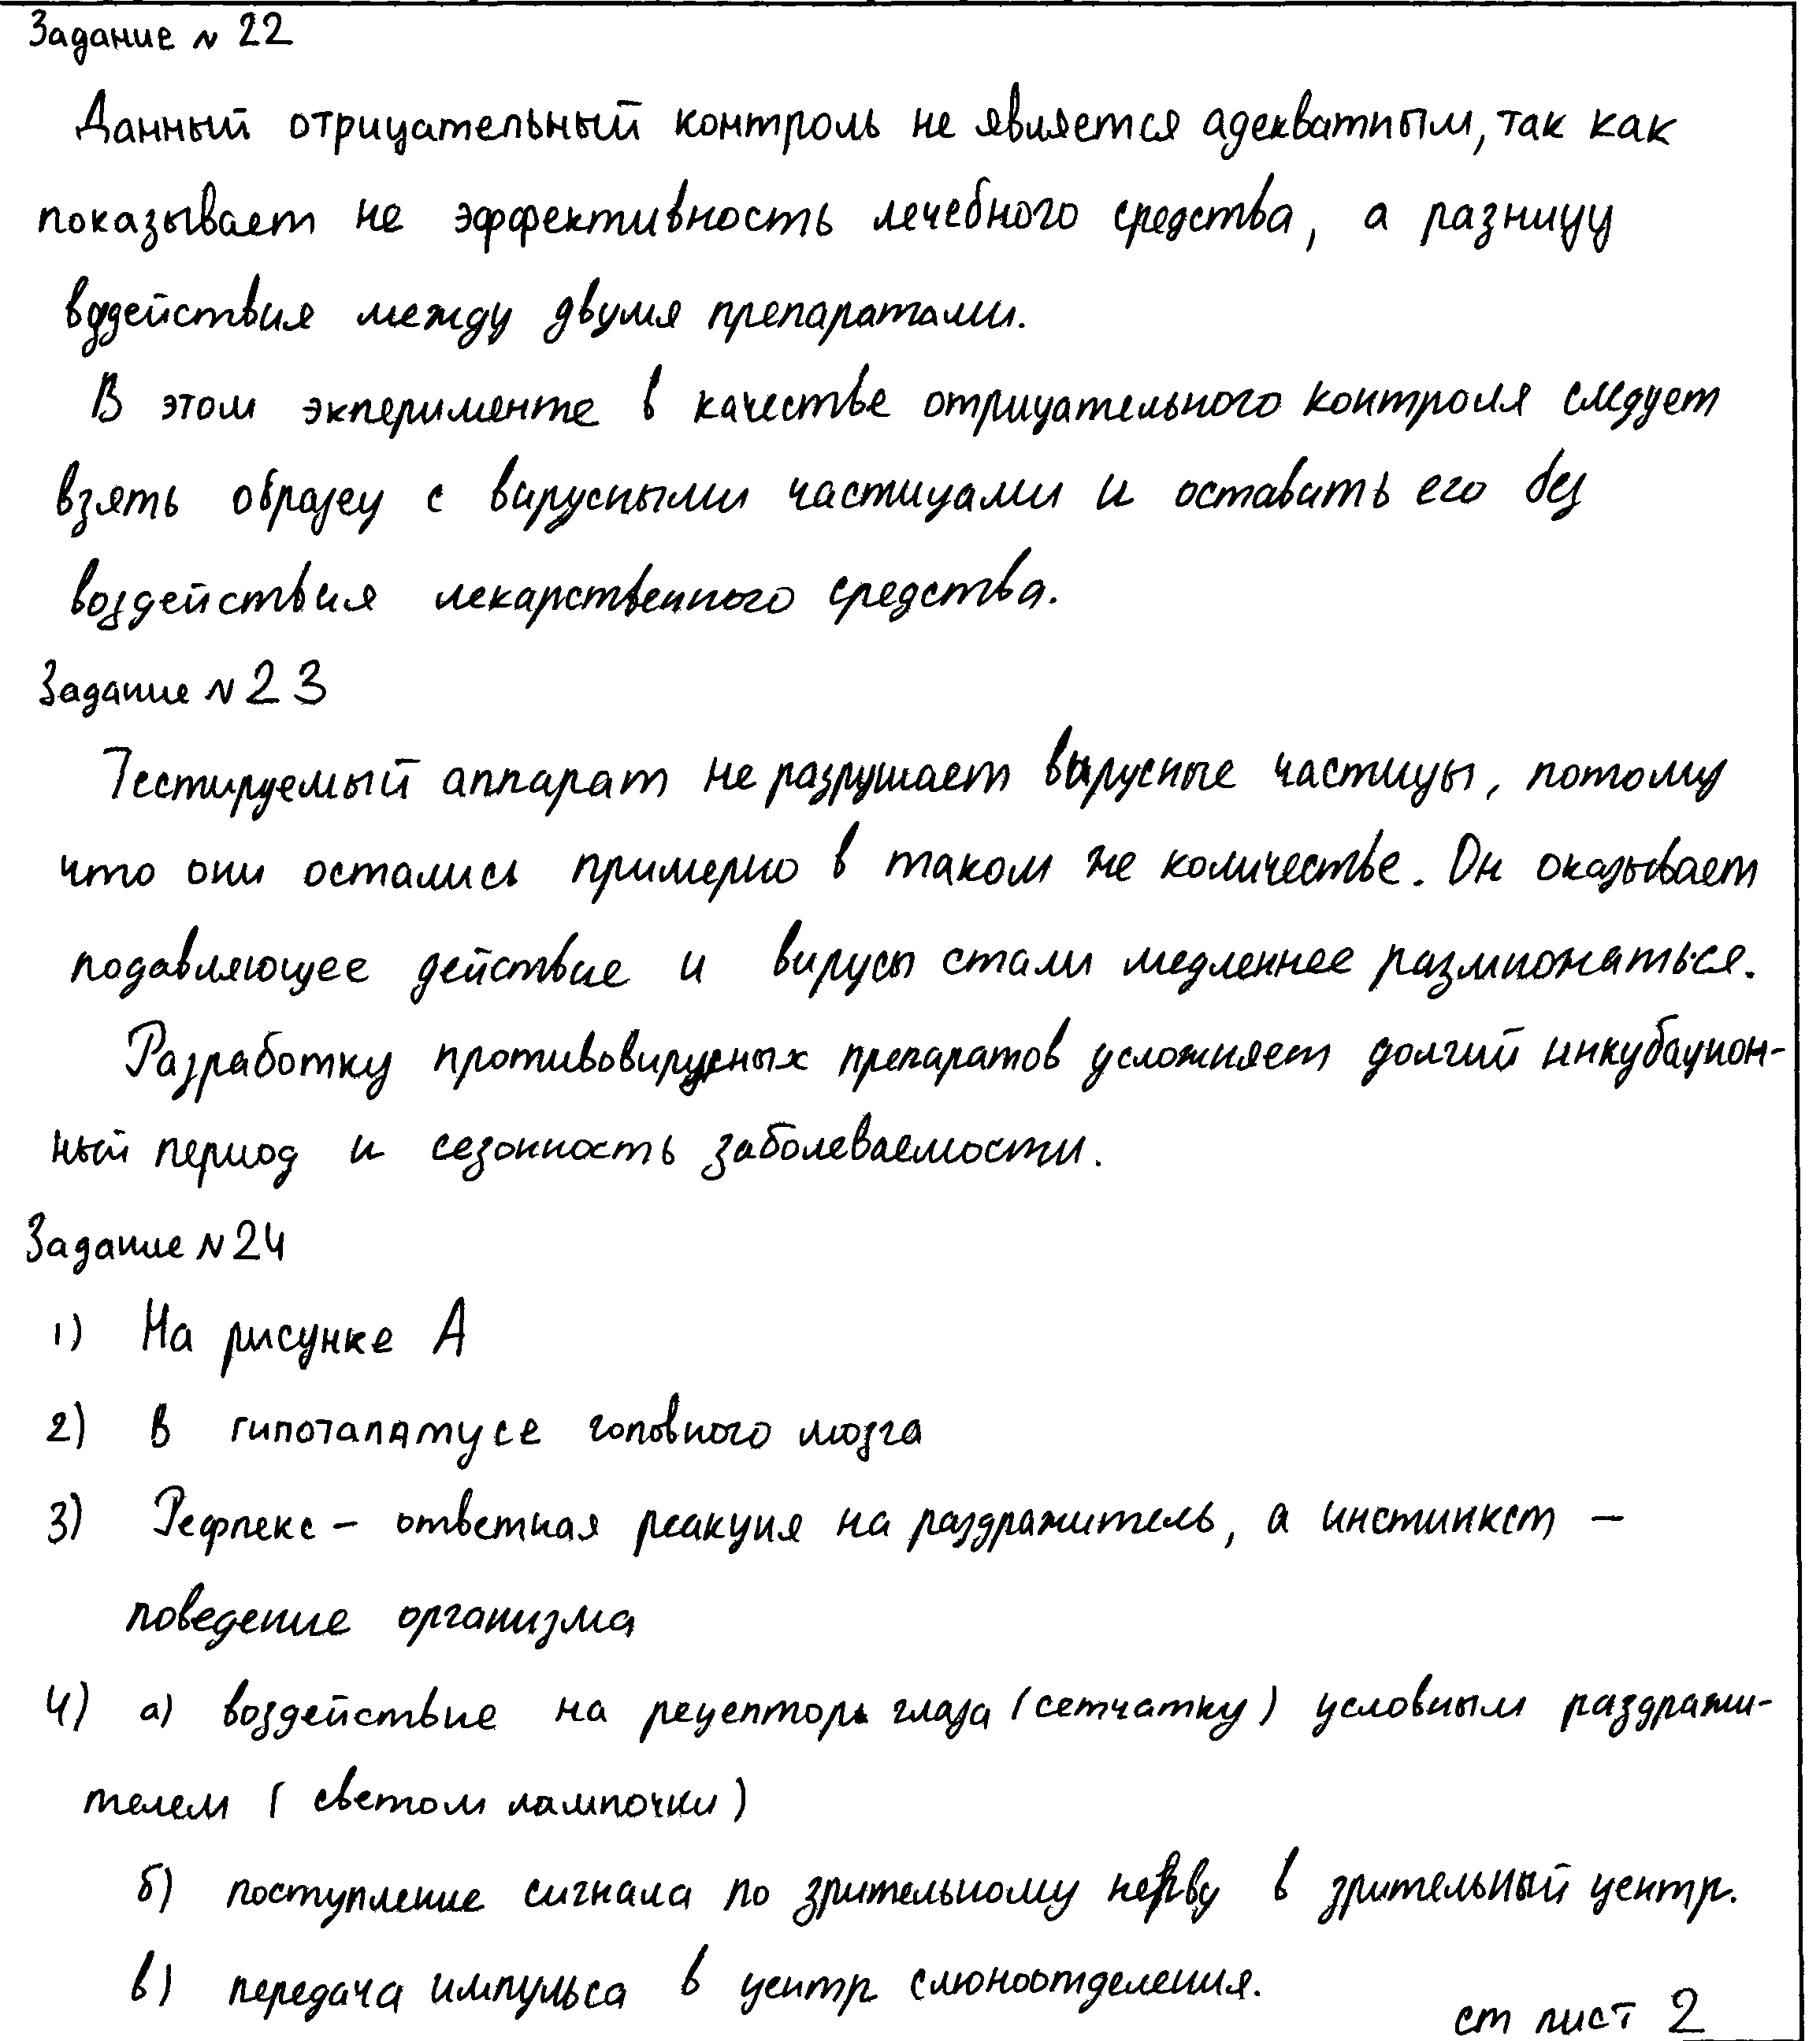 Задание № 22
Данный отрицательный контроль не является адекватным, так как
показывает не эффективность лечебного средства, а разницу
воздействия между двумя препаратами.
В этом эксперименте в качестве отрицательного контроля следует
взять образец с вирусными частицами и оставить его без
воздействия лекарственного средства.
Задание № 23
Тестируемый аппарат не разрушает вирусные частицы, потому
что они остались примерно в таком же количестве. Он оказывает
подавляющее действие и вирусы стали медленнее размножаться.
Разработку противовирусных препаратов усложняет долгий инкубацион-
ный период и сезонность заболеваемости.
Задание № 24
1) На рисунке А
2) В гипоталамусе головного мозга
3) Рефлекс – ответная реакция на раздражитель, а инстинкт –
поведение организма
4) а) воздействие на рецептор глаза (сетчатку) условным раздражи-
телем (светом лампочки)
б) поступление сигнала по зрительному нерву в зрительный центр.
в) передача импульса в центр слюноотделения.
см лист 2